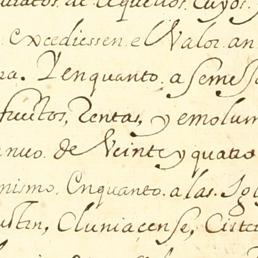 de aquellos, cuyos
excediessen el Valor an
ra. Y enquanto a seme
fructos, Rentas, y emolum
nuo de Veinte y quatro
nismo. Enquanto a las Igl
ustin, Cluniacense, Ciste